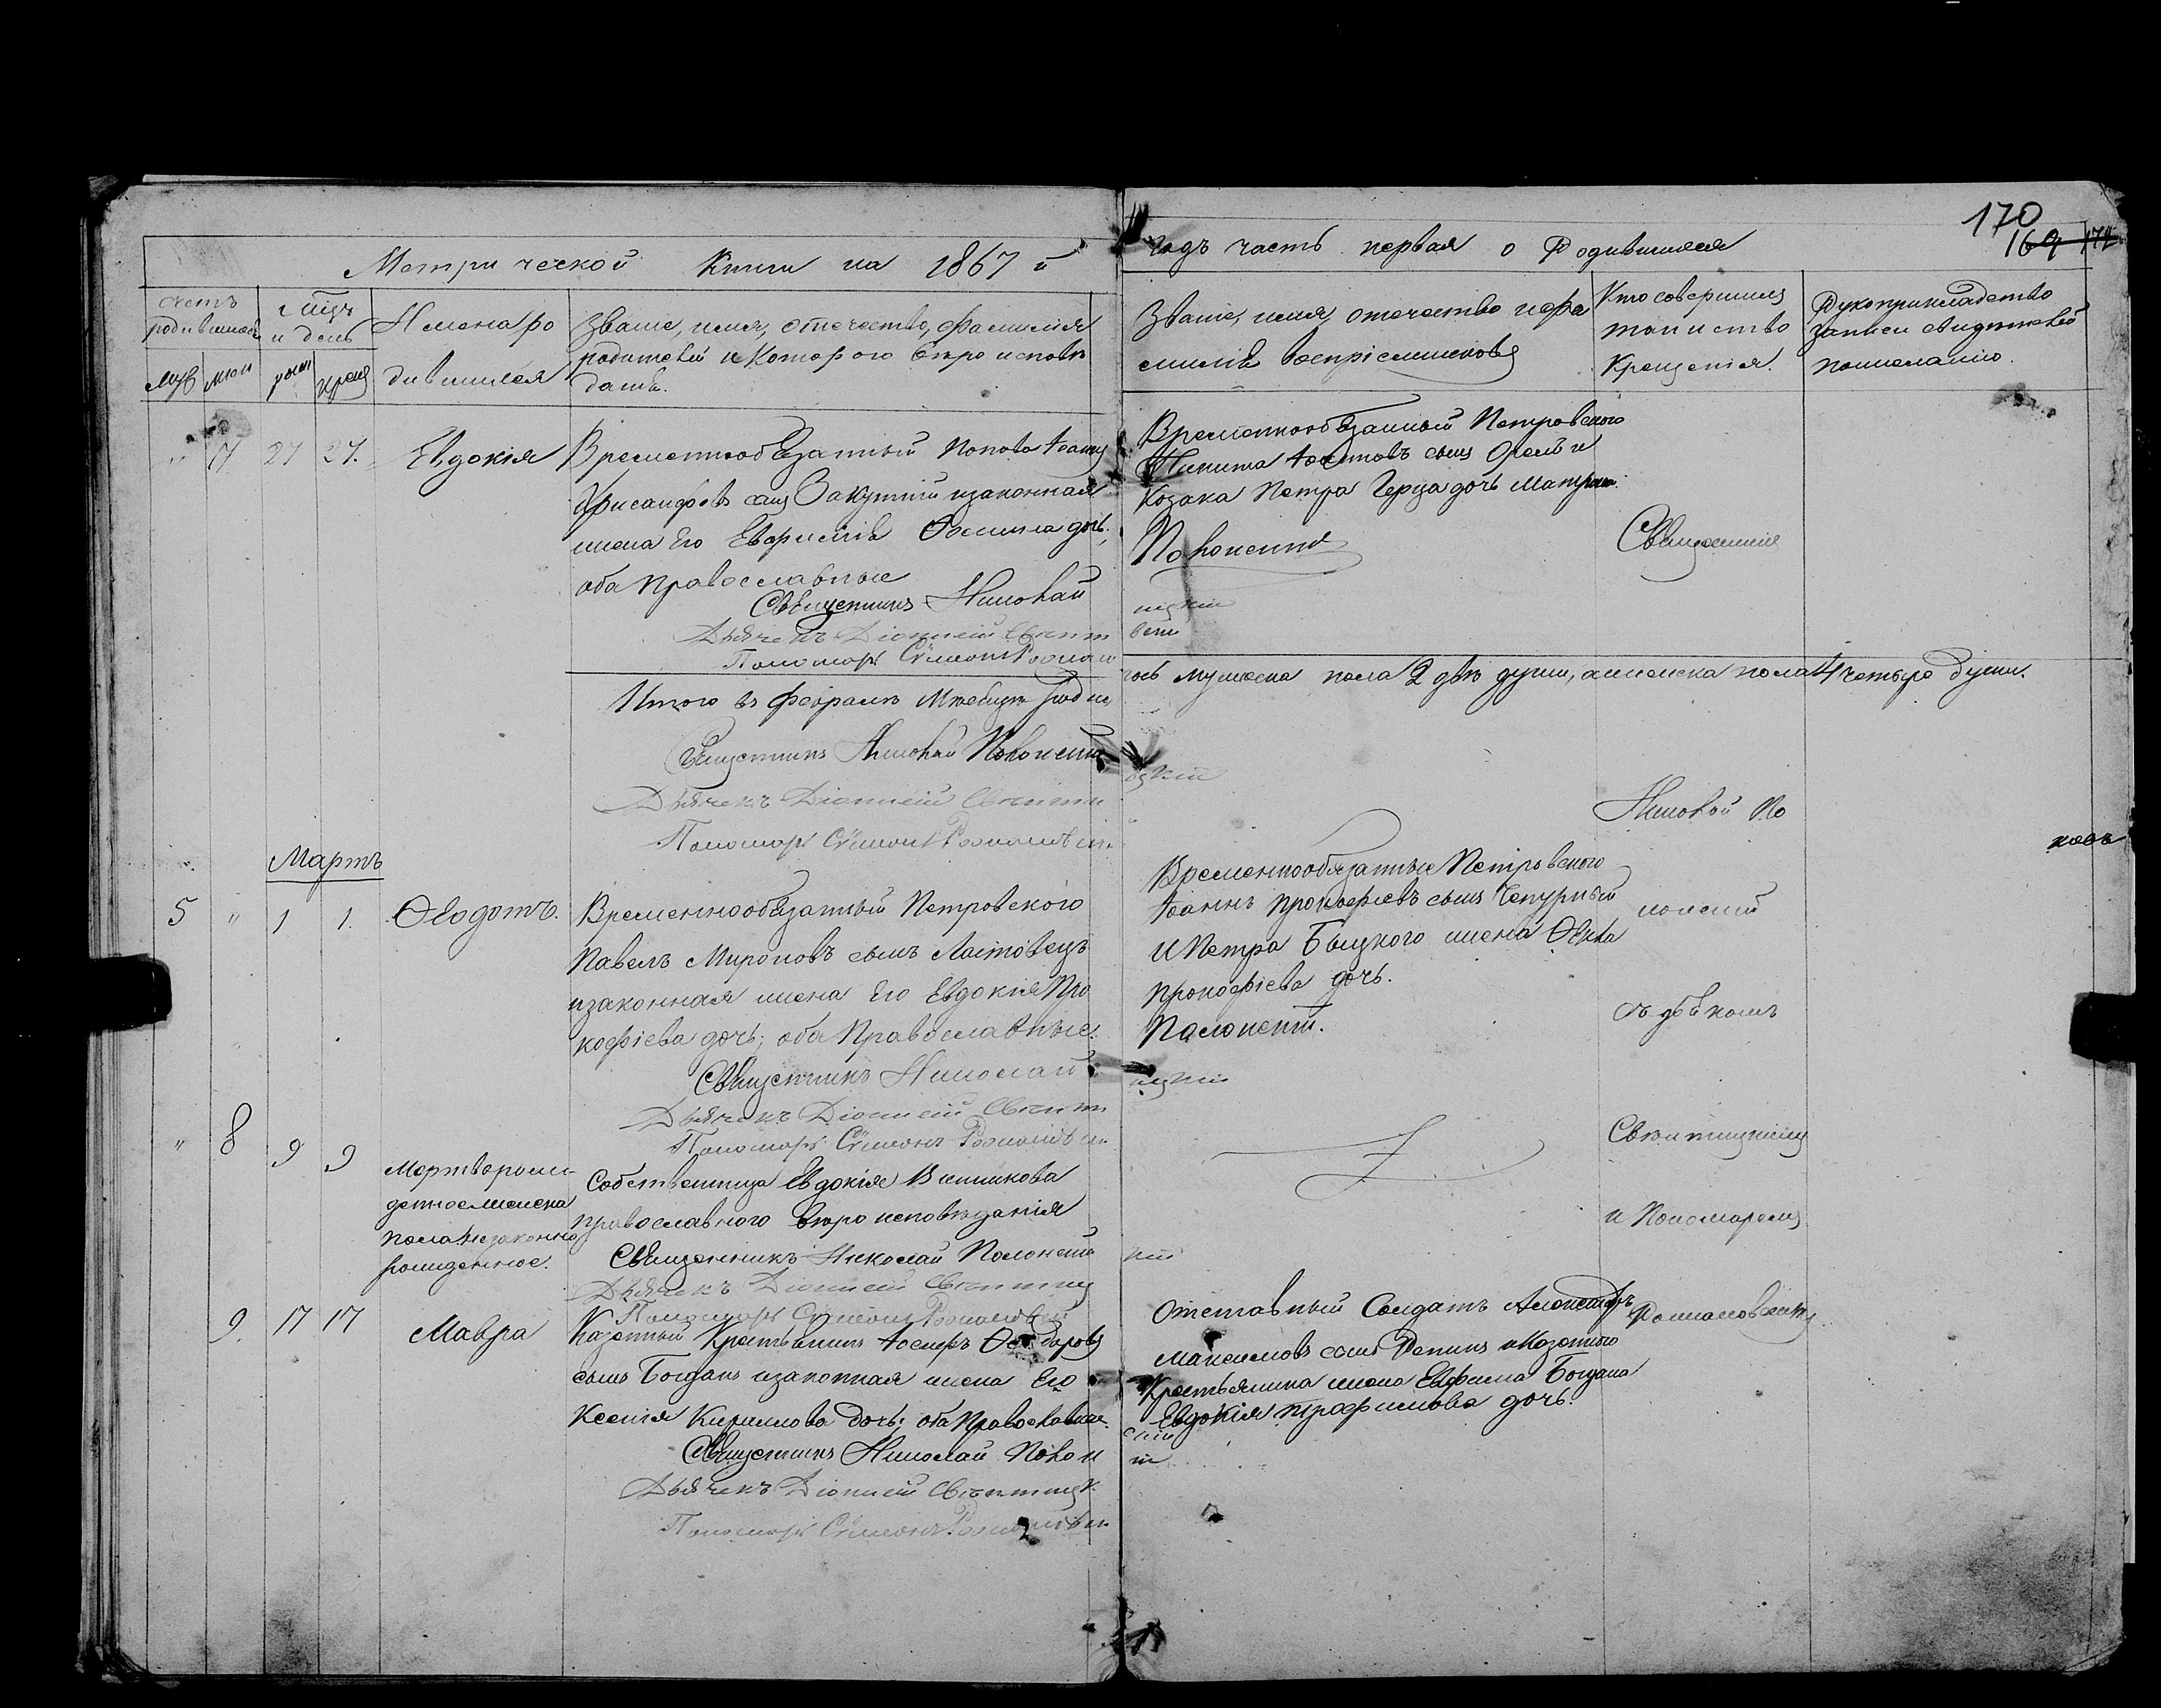 170
169 171
Метрической Книги на 1867 й
годъ часть первая о Родившихся
счетъ родившихся
мцъ и день
Имена родившихся
Званіе, имя, отечество, фамилія
родителей и Котораго вѣроисповѣ
данія.
Званіе, имя отечество и фа
милія воспріемниковъ
Кто совершилъ
таинство
Крещенія.
Рукоприкладство
записи свидетелей
по желанію.
муж жен рожд крещ
" 7 27 27. Евдокія
Временнообязанный Попова Іоаннъ
Хрисанфовъ сынъ Закутній и законная
жена Его Евфимія дочь,
оба Православные
Священникъ Николай
Дьячекъ Діонисій Святит
Пономарь Сѵмеонъ Романов
Временнообязанный Петровского
Никита сынъ и
Козака Петра Герца дочь Матрон
Полонскій
Священник
цкій
Итого въ Февралѣ Мѣсяцѣ роди
лось мужеска пола 2 двѣ души, а женска пола 4 четыре души.
Священникъ Николай Полонскій
Дьячекъ Діонисій Святит
цкій
Пономарь Сѵмеонъ Романовскі
Николай По
Мартъ
5 " 1 1. Ѳеодотъ.
Временнообязанный Петровского
Павелъ Мироновъ сынъ Ластовецъ
и законная жена Его Евдокія Про
кофіева дочь; оба Православные.
Священникъ Николай
Дьячекъ Діонисій Святит
Пономарь Сѵмеонъ Романовскі
Временнообязанные Петровского
Іоаннъ Прокофіевъ сынъ Чепурный
и Петра Быцкого жена Ѳекла
Прокофіева дочь.
Полонскій.
цкій
лонскій
съ дьѣкомъ
" 8 9 9
Мертворож-
денное женска
пола незаконно
рожденное.
Собственница Евдокія Винникова
православного вѣроисповѣданія
Священникъ Николай Полонскі
Дьячекъ Діонисій Святитц
Пономарь Сѵмеонъ Романовскій
кій
Святитцкимъ
и Пономаремъ
9. 17 17 Мавра
Казенный Крестьянинъ Іосифъ
сынъ Богданъ и законная жена Его
Ксенія Кириллова дочь; оба Православные.
Священникъ Николай Полон
Дьячекъ Діонисій Святитцк
Пономарь Сѵмеонъ Романовскі
Отставный Солдатъ Александръ
Максимовъ сынъ Репинъ и Казенного
Крестьянина жена Евфима Богдана
Евдокія Трофимова дочь.
скій
ій
Романовскимъ